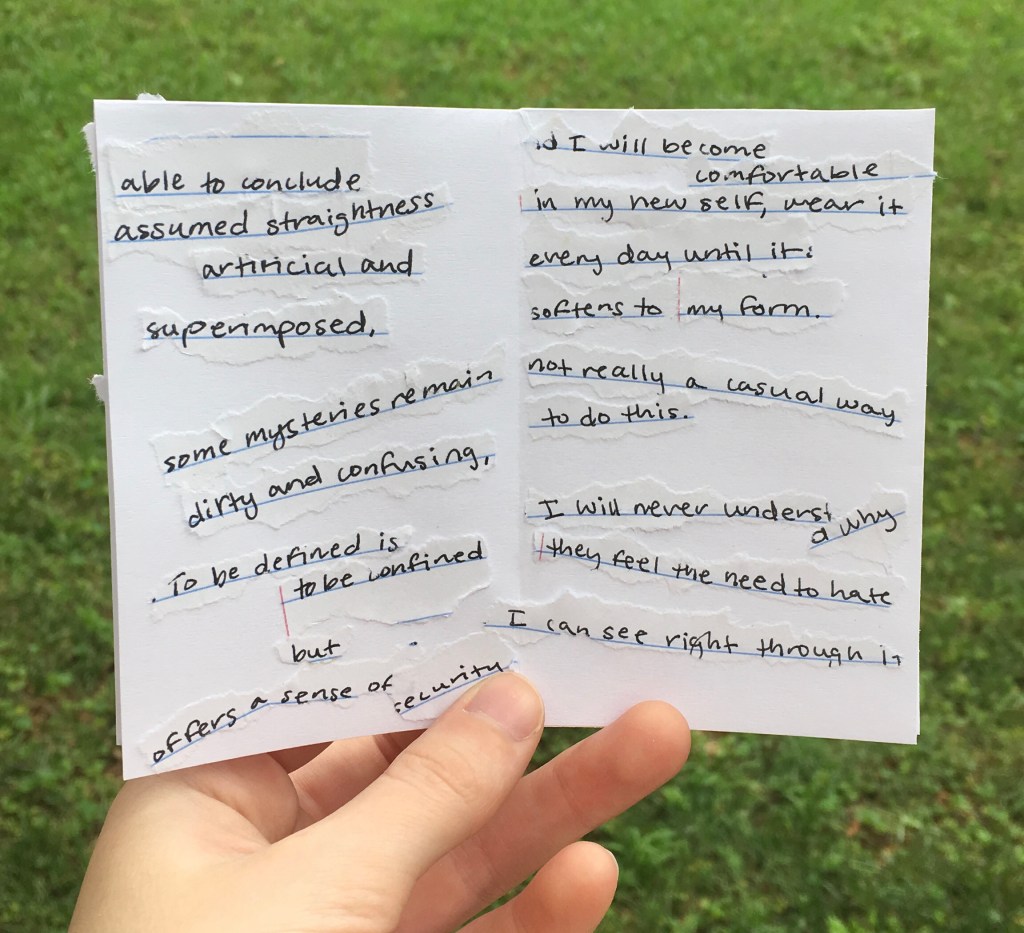 able to conclude
assumed straightness
artificial and
superimposed,
some mysteries remain
dirty and confusing,
. To be defined is
to be confined
but
offers a sense of
security
I will become
comfortable
in my new self, wear it
every day until it
softens to my form.
not really a casual way
to do this.
I will never underst
why
they feel the need to hate
I can see right through it